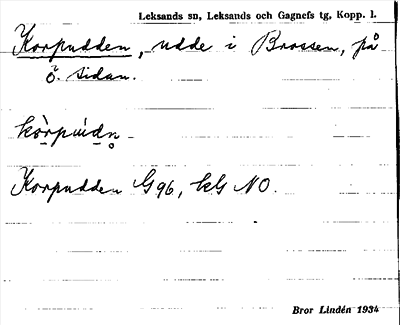 Leksands sn, Leksands och Gagnefs tg, Kopp. l.
Korpudden, udde i Brossen, på
ö. sidan.
Korpudden G96, kG NO.
Bror Lindén 1934